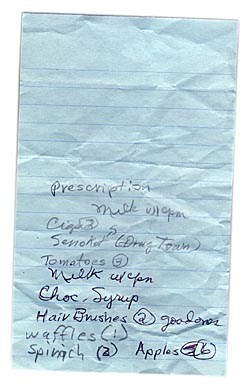 Prescription
Milk w/cpn
Cigs
Senokot (Drug Town)
Tomatoes (3)
Milk w/cpn
Choc. Syrup
Hair Brushes (2) good ones
waffles (1)
Spinach (2) Apples (6)